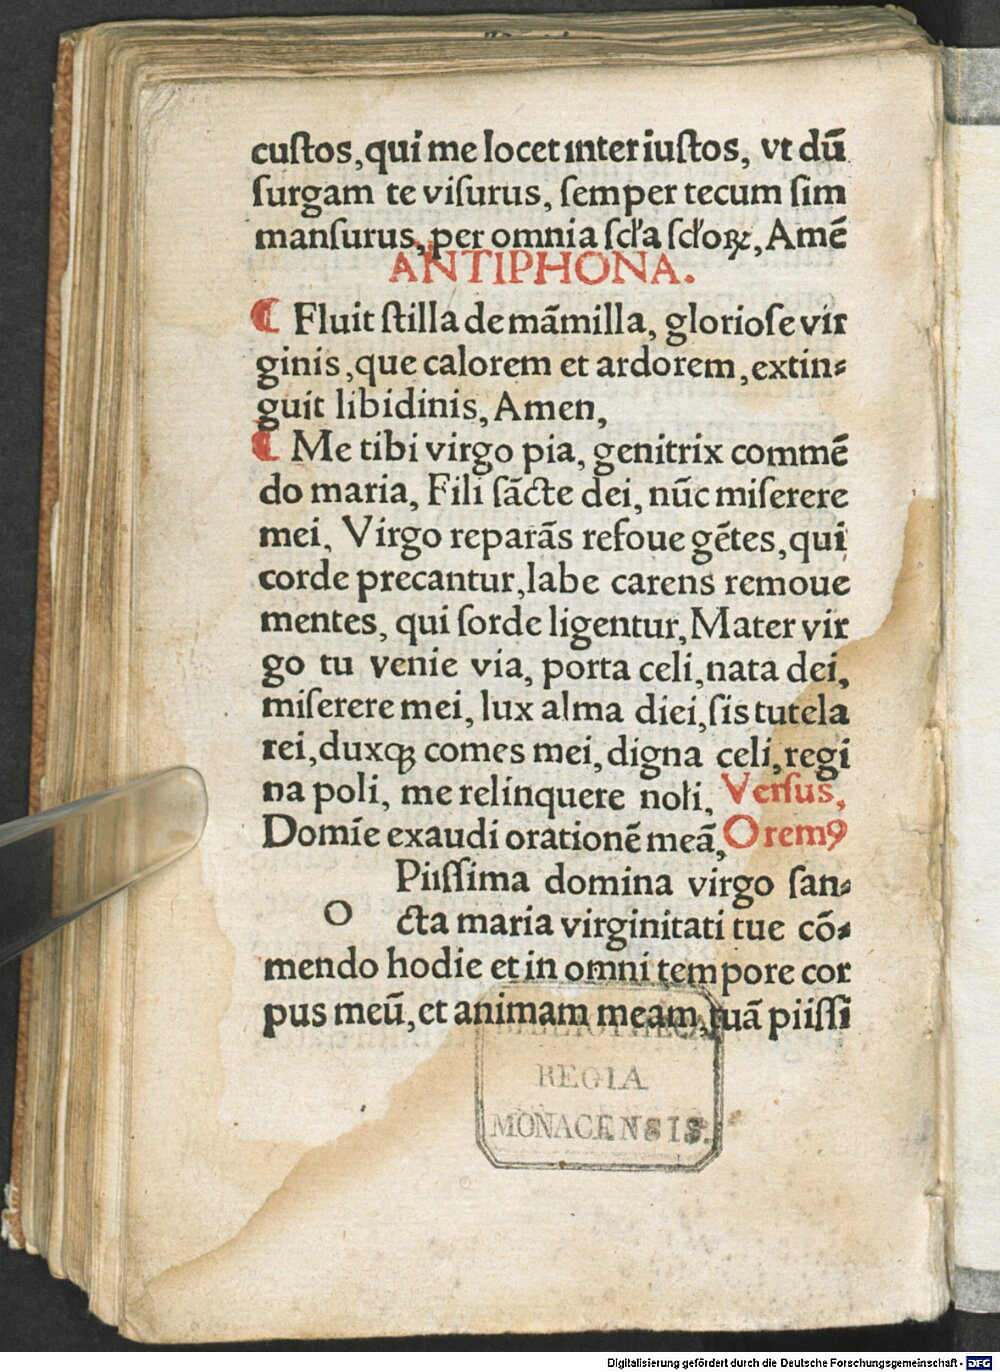 custos, qui me locet inter iustos, vt dū
surgam te visurus, semper tecum sim
mansurus, per omnia scl'a scl'oꝝ, Amē
ANTIPHONA.
¶ Fluit stilla de māmilla, gloriose vir
ginis, que calorem et ardorem, extin⸗
guit libidinis, Amen,
¶ Me tibi virgo pia, genitrix commē
do maria, Fili sācte dei, nūc miserere
mei, Virgo reparās refoue gētes, qui
corde precantur, labe carens remoue
mentes, qui sorde ligentur, Mater vir
go tu venie via, porta celi, nata dei,
miserere mei, lux alma diei, sis tutela
rei, duxqꝫ comes mei, digna celi, regi
na poli, me relinquere noli, Versus,
Domīe exaudi orationē meā, Orem9
O Piissima domina virgo san⸗
cta maria virginitati tue cō⸗
mendo hodie et in omni tempore cor
pus meū, et animam meam, tuā piissi
BIBLIOTHECA
REGIA
MONACENSIS.
Digitalisierung gefördert durch die Deutsche Forschungsgemeinschaft - DFG